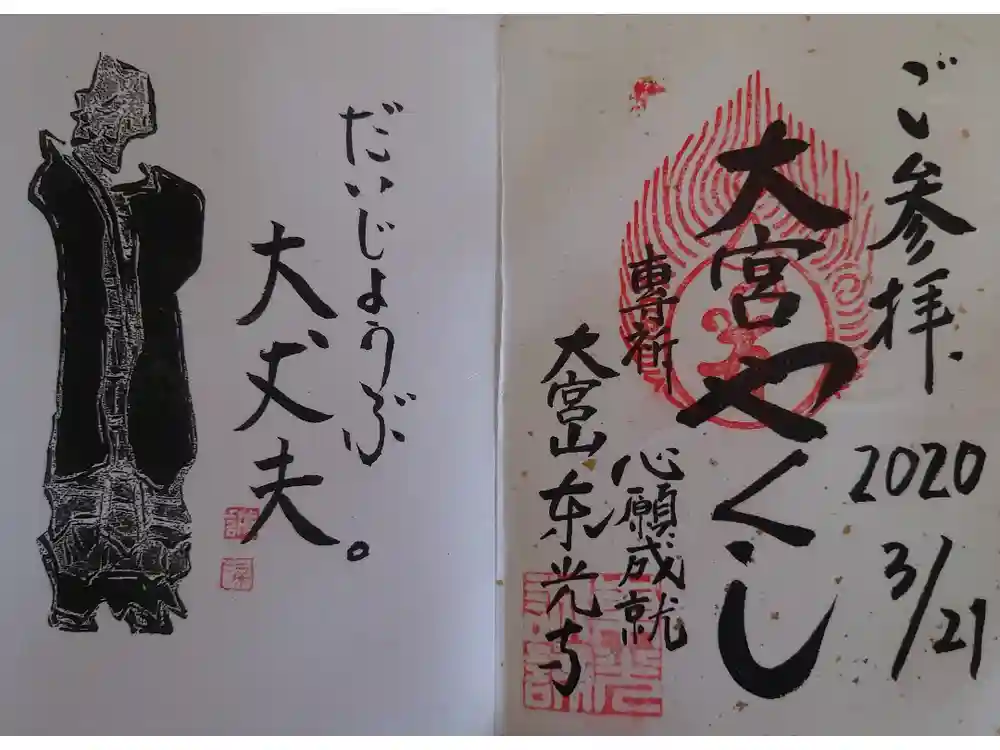 ご参拝.
2020
3/21
大宮やくし
専祈
心願成就
大宮山 东光寺
だいじょうぶ
大丈夫。